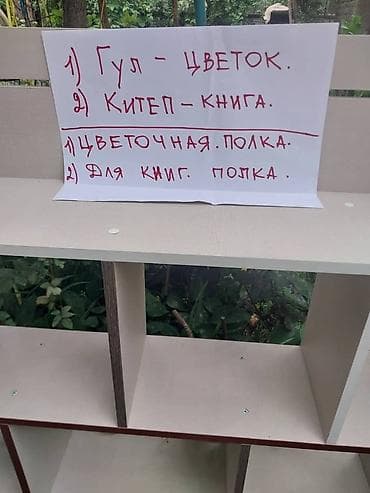 1) Гул - ЦВЕТОК.
2) КИТЕП - КНИГА.
1) ЦВЕТОЧНАЯ. ПОЛКА.
2) ДЛЯ КНИГ. ПОЛКА.